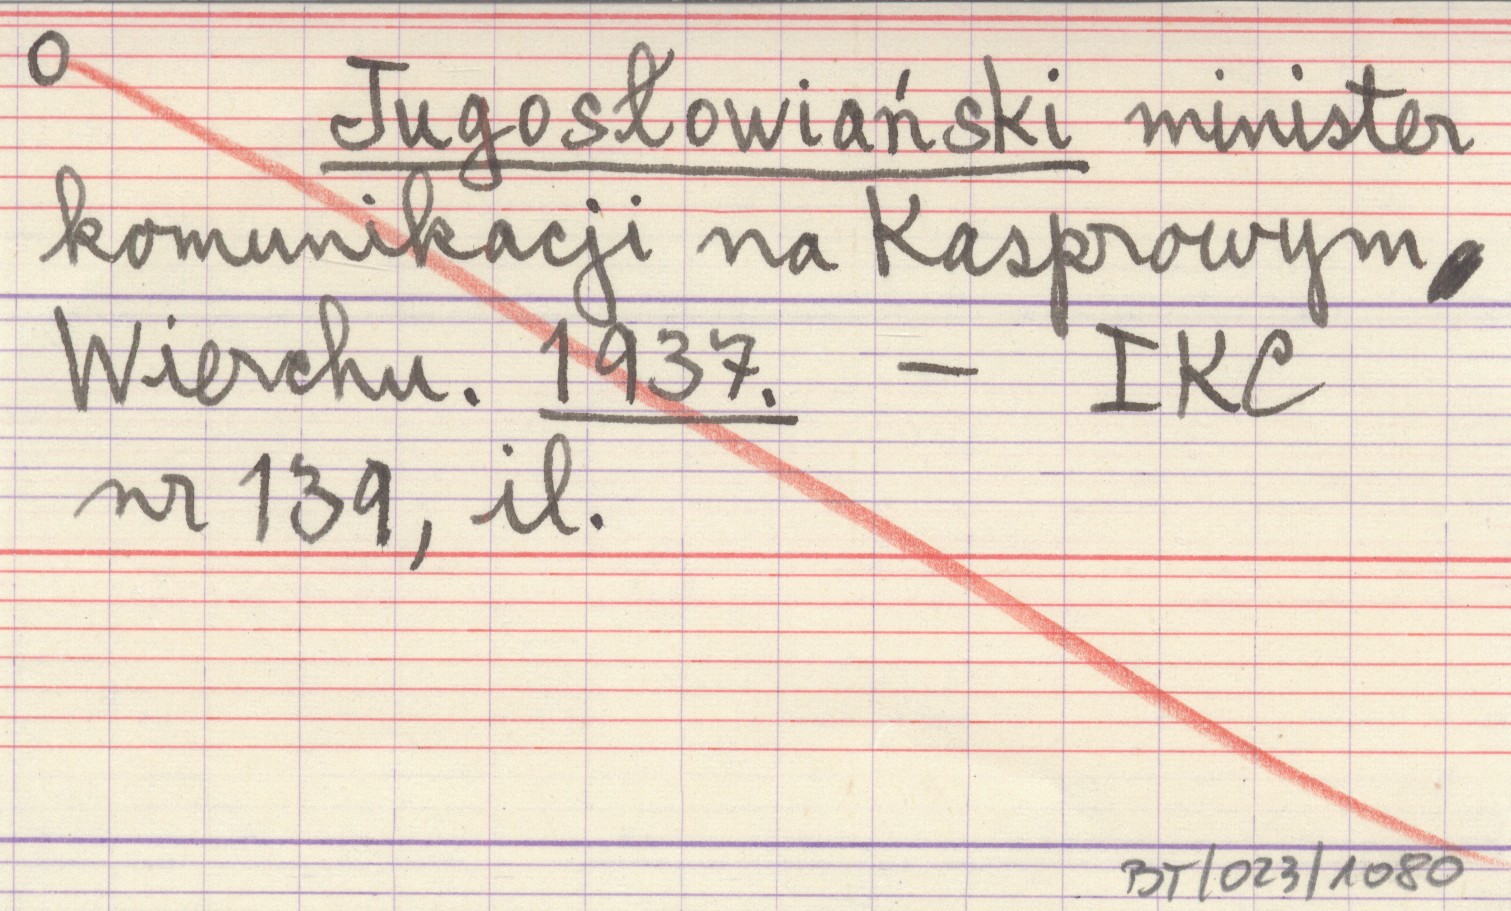 O
Jugosłowiański minister
komunikacji na Kasprowym
Wierchu. 1937. – IKC
nr 139, il.
BT/023/1080